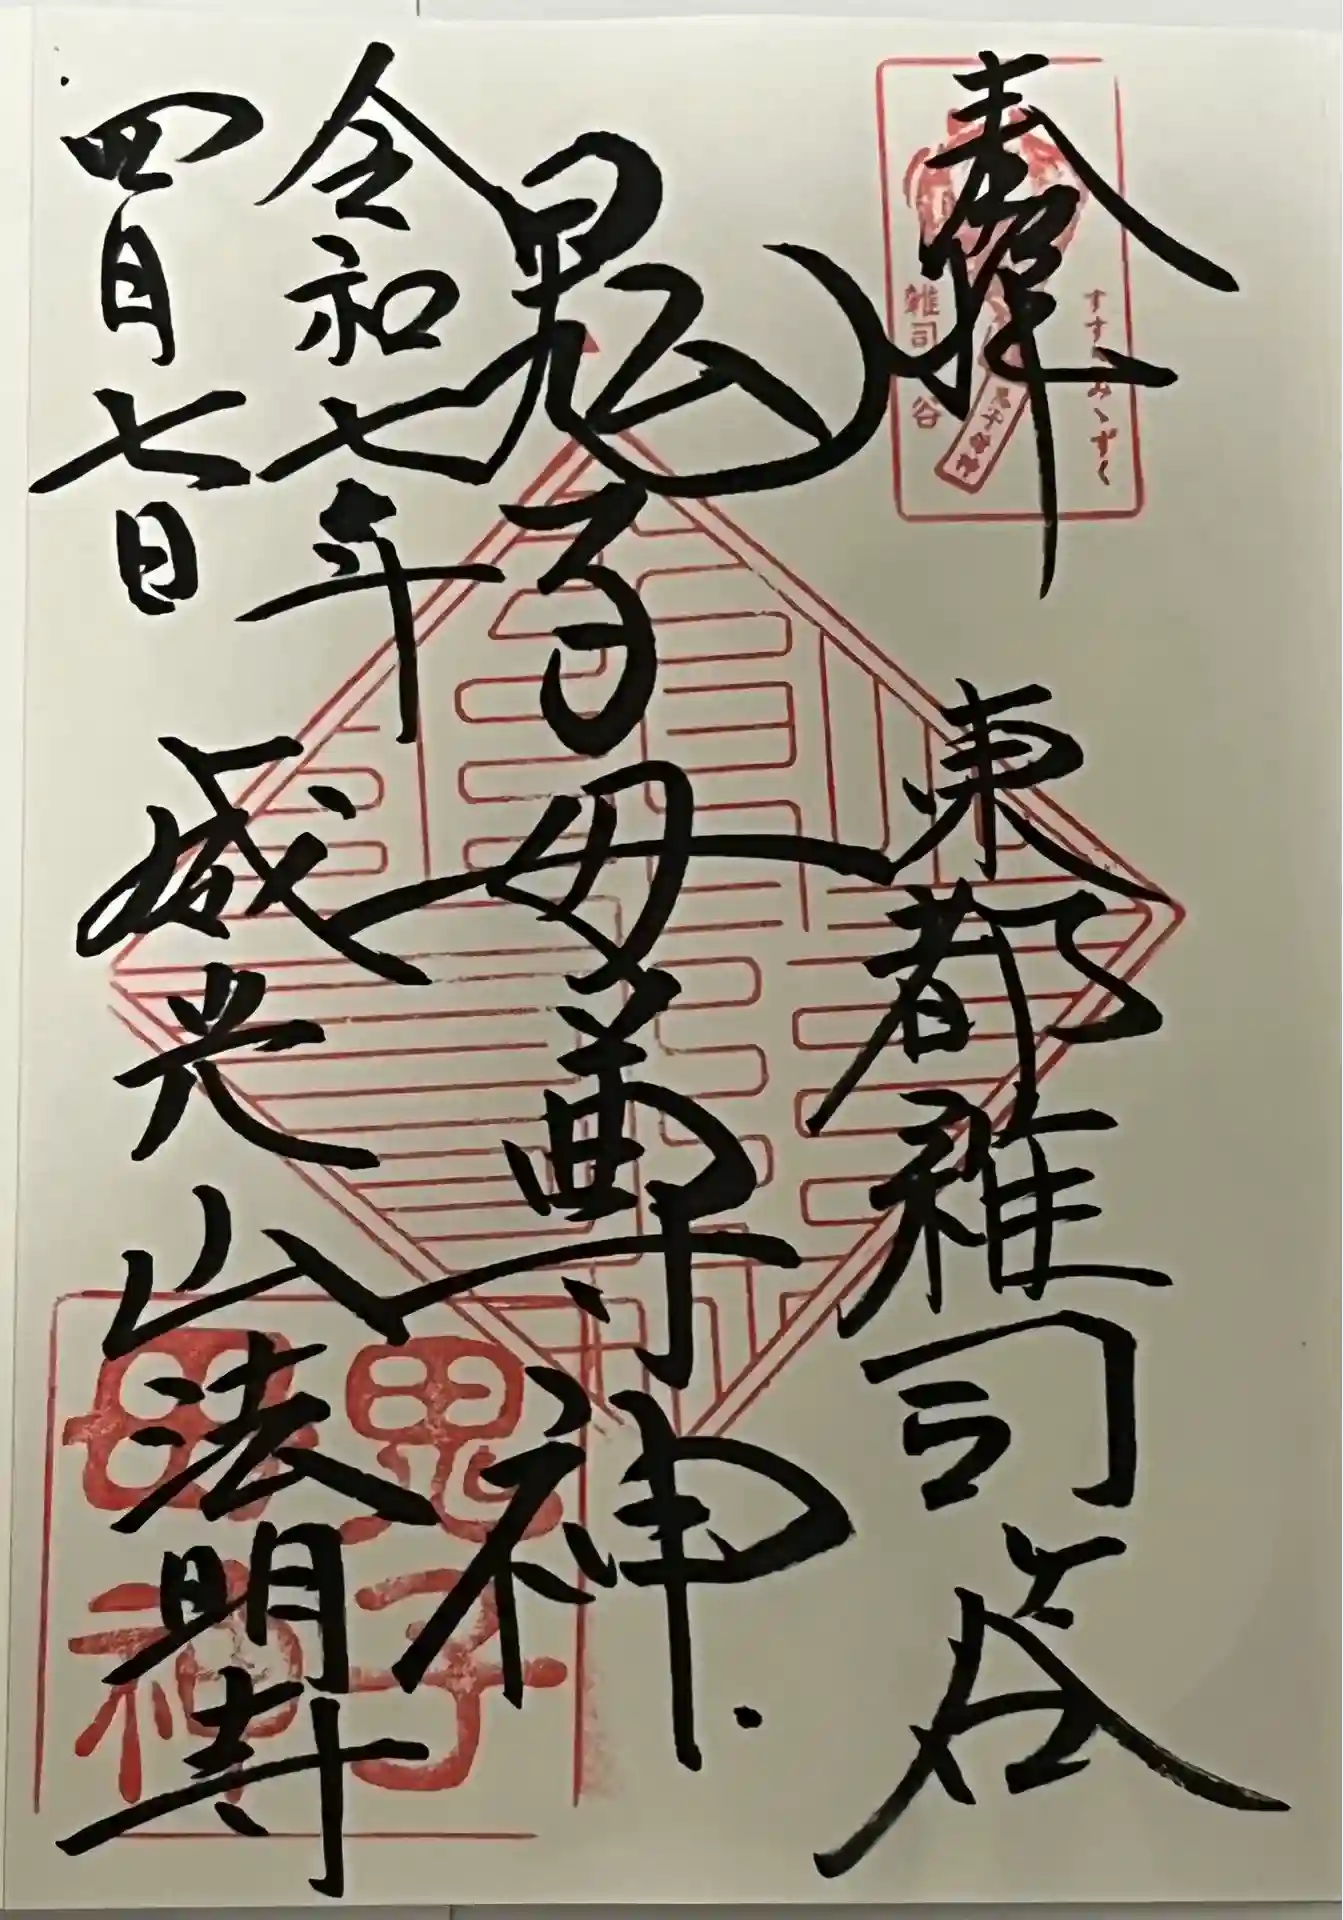 奉拝
すすきみゝずく
雑司谷
鬼子母神
東都雑司谷
鬼子母尊神
令和七年
四月七日
威光山法明寺
鬼子
母神